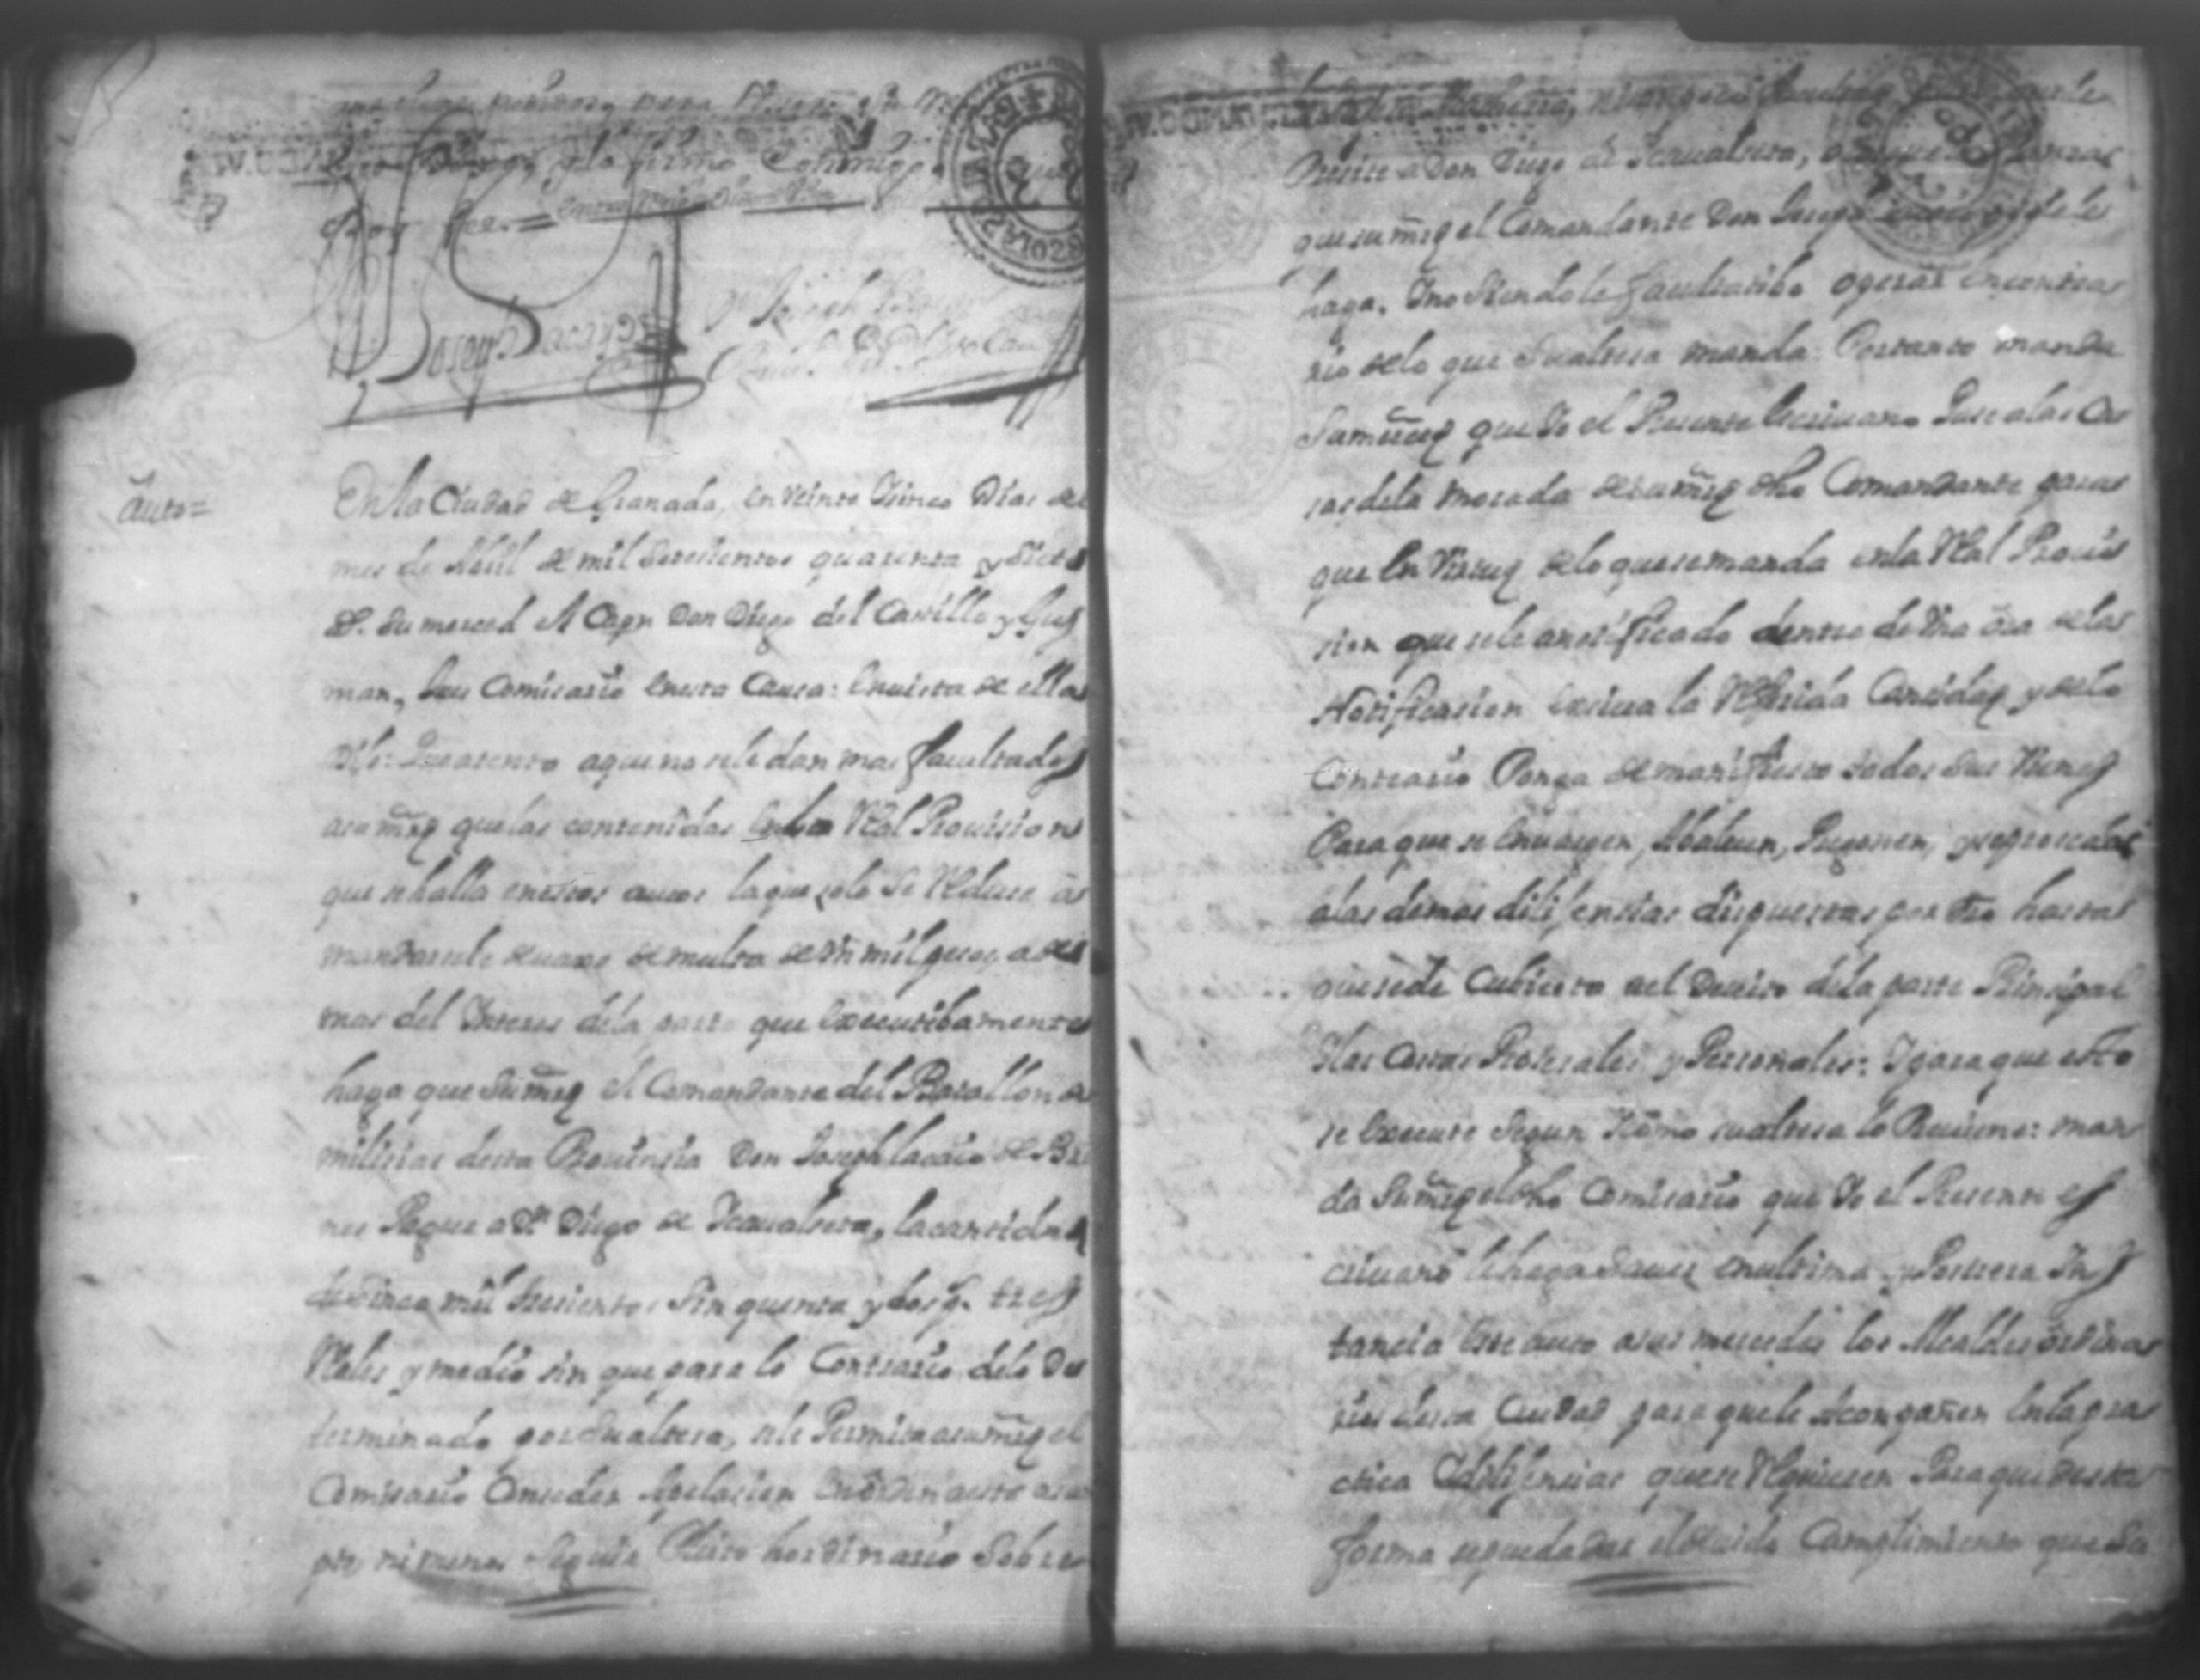 y lo firmo Conmigo
Doy fee.=
Auto=
En la Ciudad de Granada, en Veinte Isinco Dias del
mes de Abril de mil Setecientos quarenta y Siete
as. su merced el Capn Don Diego del Castillo y Gus
man, Jues Comisario en esta Causa: en vista de ella
dijo: Que atento aque no sele dan mas facultades
asu mrd que las contenidas en la Rl Provision
que se halla en estos autos la que solo se Reduse a
mandarsele devajo de multa de Un mil pesos, ade
mas del Interes de la parte que executibamente
haga que Su mrd el Comandante del Batallon de
milisias desta Provinsia Don Joseph Lacaio de Bri
nes Pague a Dn Diego de Ycaualseta, la cantidad
de Sinco mil tresientos Sinquenta y dos ps. tres
Rales y medio sin que para lo Contrario delo De
terminado por Su altesa, sele Permita a su mrd el
Comisario Conseder Apelasion
ni menos Seguir Pleito hordinario Sobre
Presise a Don Diego de Ycaualseta,
que su mrd el Comandante Don Joseph Lacaio sele
haga, Ino siendole facultatibo operar en contra
rio delo que Su altesa manda: Portanto manda
Su merced que Yo el Presente escriuano Pase alas Ca
sas dela morada de su mrd dho Comandante para
que en Virtud delo que se manda en la Rl Provi
sion que sele a notificado dentro de Una ora dela
Notificasion exiua la Referida Cantidad y delo
Contrario Ponga de manifiesto todos sus Vienes
Para que se envarguen, Abaluen, Pregonen, y se proseda
alas demas dilijensias dispuestas por dro hasta
que quede Cubierto del Devito dela parte Prinsipal
Ilas Costas Prosesales y Personales: Ipara que esto
se execute Segun Icomo su altesa lo Previene: man
da Su mrd el dho Comisario que Yo el Presente es
criuano le haga Sauer en ultima y Postrera Ins
tancia este auto a sus mercedes los Alcaldes ordina
rios desta Ciudad para que le Acompañen en la pra
ctica Edilijensias que se Requieren Para que desta
forma se pueda dar el deuido Cumplimiento que Su